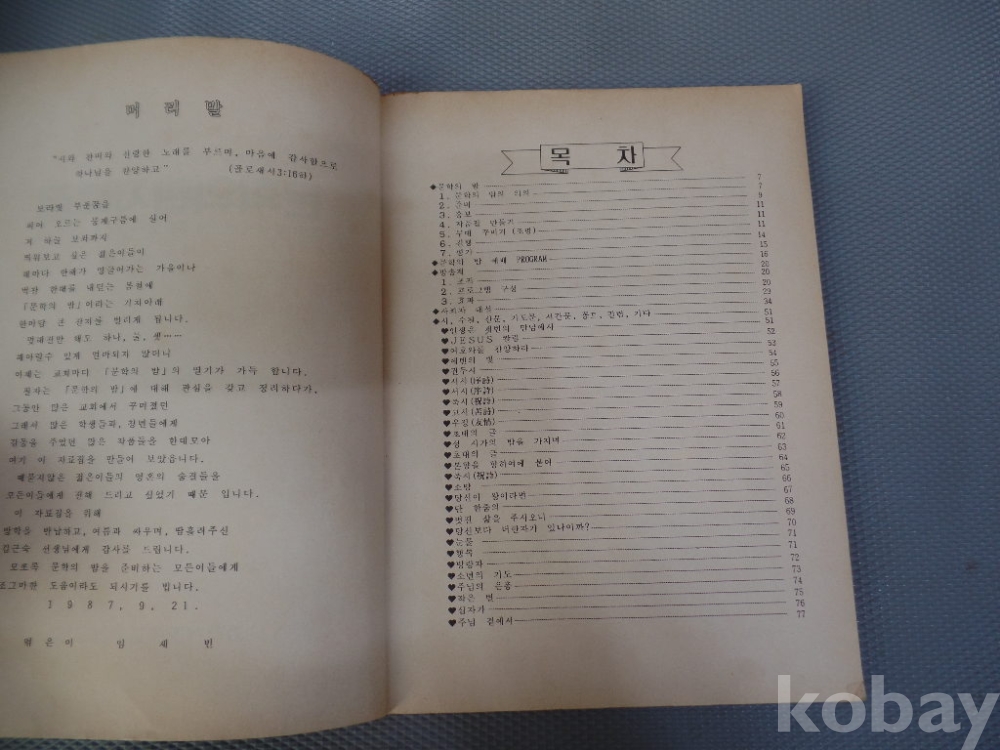 머 리 말
"시와 찬미와 신령한 노래를 부르며, 마음에 감사함으로
하나님을 찬양하고" (골로새서3:16하)
보라빛 푸른꿈을
저 하늘 보좌까지
띄워보고 싶은 젊은이들이
해마다 한해가 영글어가는 가을이나
백판 한해를 내린는 몰절에
『문학의 밤』이라는 기치아래
한마당 큰 잔치를 알리게 됩니다.
옛대전만 해도 하나, 둘, 셋……
헤아릴수 있게 얼마되지 않더니
이제는 교회마다 『문학의 밤』의 열기가 가득 합니다.
필자는 『문학의 밤』에 대해 관심을 갖고 정리하다가,
그동안 많은 교회에서 꾸며졌던
그래서 많은 학생들과, 청년들에게
감동을 주었던 많은 작품들을 한데모아
여기 이 자료집을 만들어 보았읍니다.
때묻지않은 젊은이들의 영혼의 숨결들을
모든이들에게 전해 드리고 싶었기 때문 입니다.
이 자료집을 위해
방학을 반납하고, 여름과 싸우며, 땀흘려주신
김근숙 선생님에게 감사를 드립니다.
모쪼록 문학의 밤을 준비하는 모든이들에게
조그마한 도움이라도 되시기를 빕니다.
1987, 9, 21.
엮은이 임 세 빈
목 차
◆문학의 밤 7
1. 문학의 밤의 의의 7
2. 준비 9
3. 홍보 11
4. 작품집 만들기 11
5. 무대 꾸미기 (조명) 11
6. 진행 14
7. 평가 15
◆문학의 밤 예배 PROGRAM 16
◆방송제 20
1. 조직 20
2. 프로그램 구성 23
3. 효과 29
◆사회자 대석 34
◆시, 수필, 산문, 기도문, 서간문, 콩트, 칼럼, 기타 51
♥인생은 세번의 만남에서 51
♥JESUS 찾음 52
♥여호와를 찬양하라 53
♥세번의 벨 54
♥권두시 55
♥서시(序詩) 56
♥서시(序詩) 57
♥축시(祝詩) 58
♥고시(苦詩) 59
♥우정(友情) 60
♥초대의 글 61
♥성 시가의 밤을 가지며 62
♥초대의 글 63
♥문향을 향하여에 붙여 64
♥축시(祝詩) 65
♥소망 66
♥당신이 왕이라면 67
♥단 한줄의 68
♥멋진 삶을 주시오니 69
♥당신보다 더한자가 있나이까? 70
♥눈물 71
♥행복 71
♥방랑자 72
♥소년의 기도 73
♥주님의 은총 74
♥작은 별 75
♥십자가 76
♥주님 곁에서 77
kobay